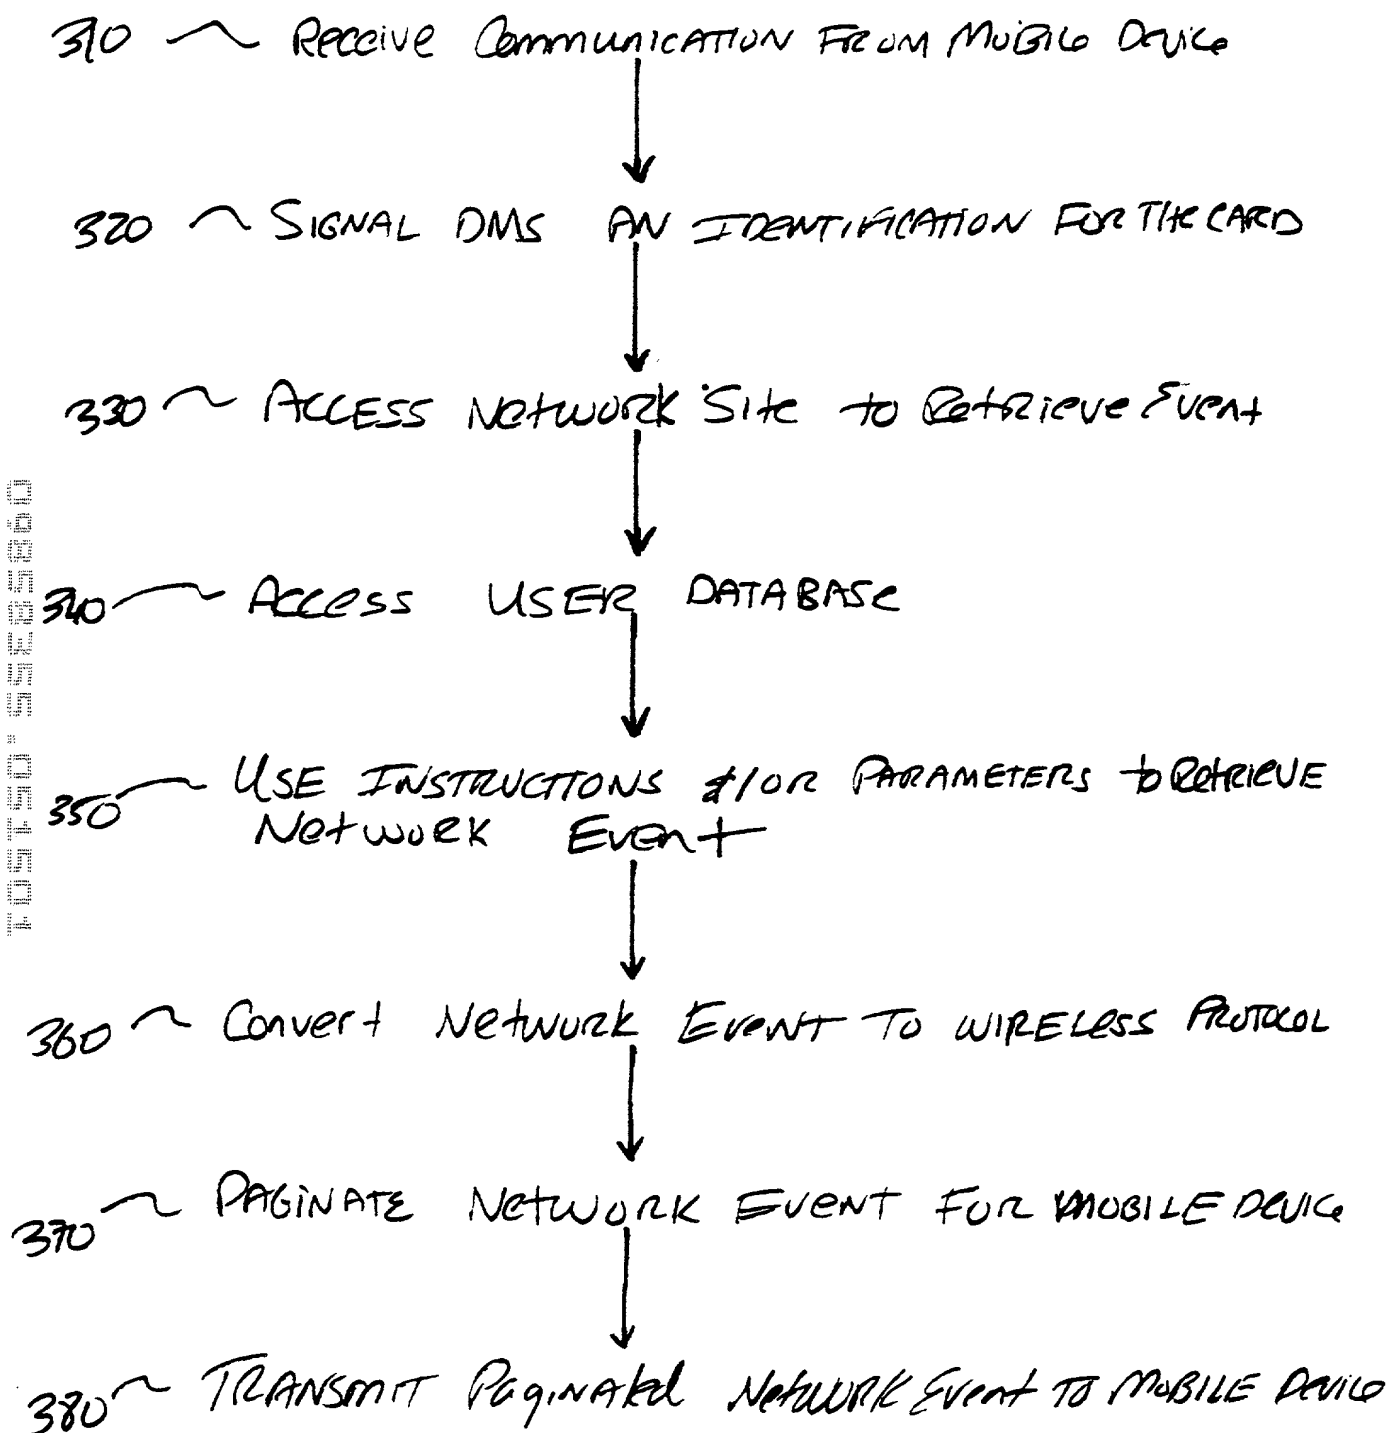 310 Receive Communication From Mobile Device
320 Signal DMS an Identification for the card
330 Access Network Site to Retrieve Event
340 Access User Database
350 Use Instructions &/or Parameters to Retrieve
Network Event
360 Convert Network Event to Wireless Protocol
370 Paginate Network Event for Mobile Device
380 Transmit Paginated Network Event to Mobile Device